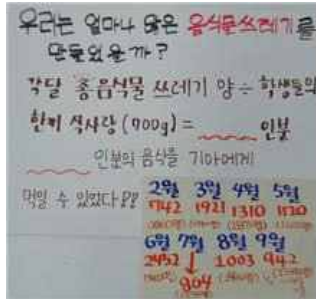 우리는 얼마나 많은 음식물쓰레기를
만들었을까?
각달 총음식물 쓰레기 양 ÷ 학생들의
한끼 식사량 (700g) = 인분
인분의 음식을 기아에게
먹일 수 있었다!!
2월 3월 4월 5월
742 1921 1310 1120
6월 7월 8월 9월
2452 1003 942
804